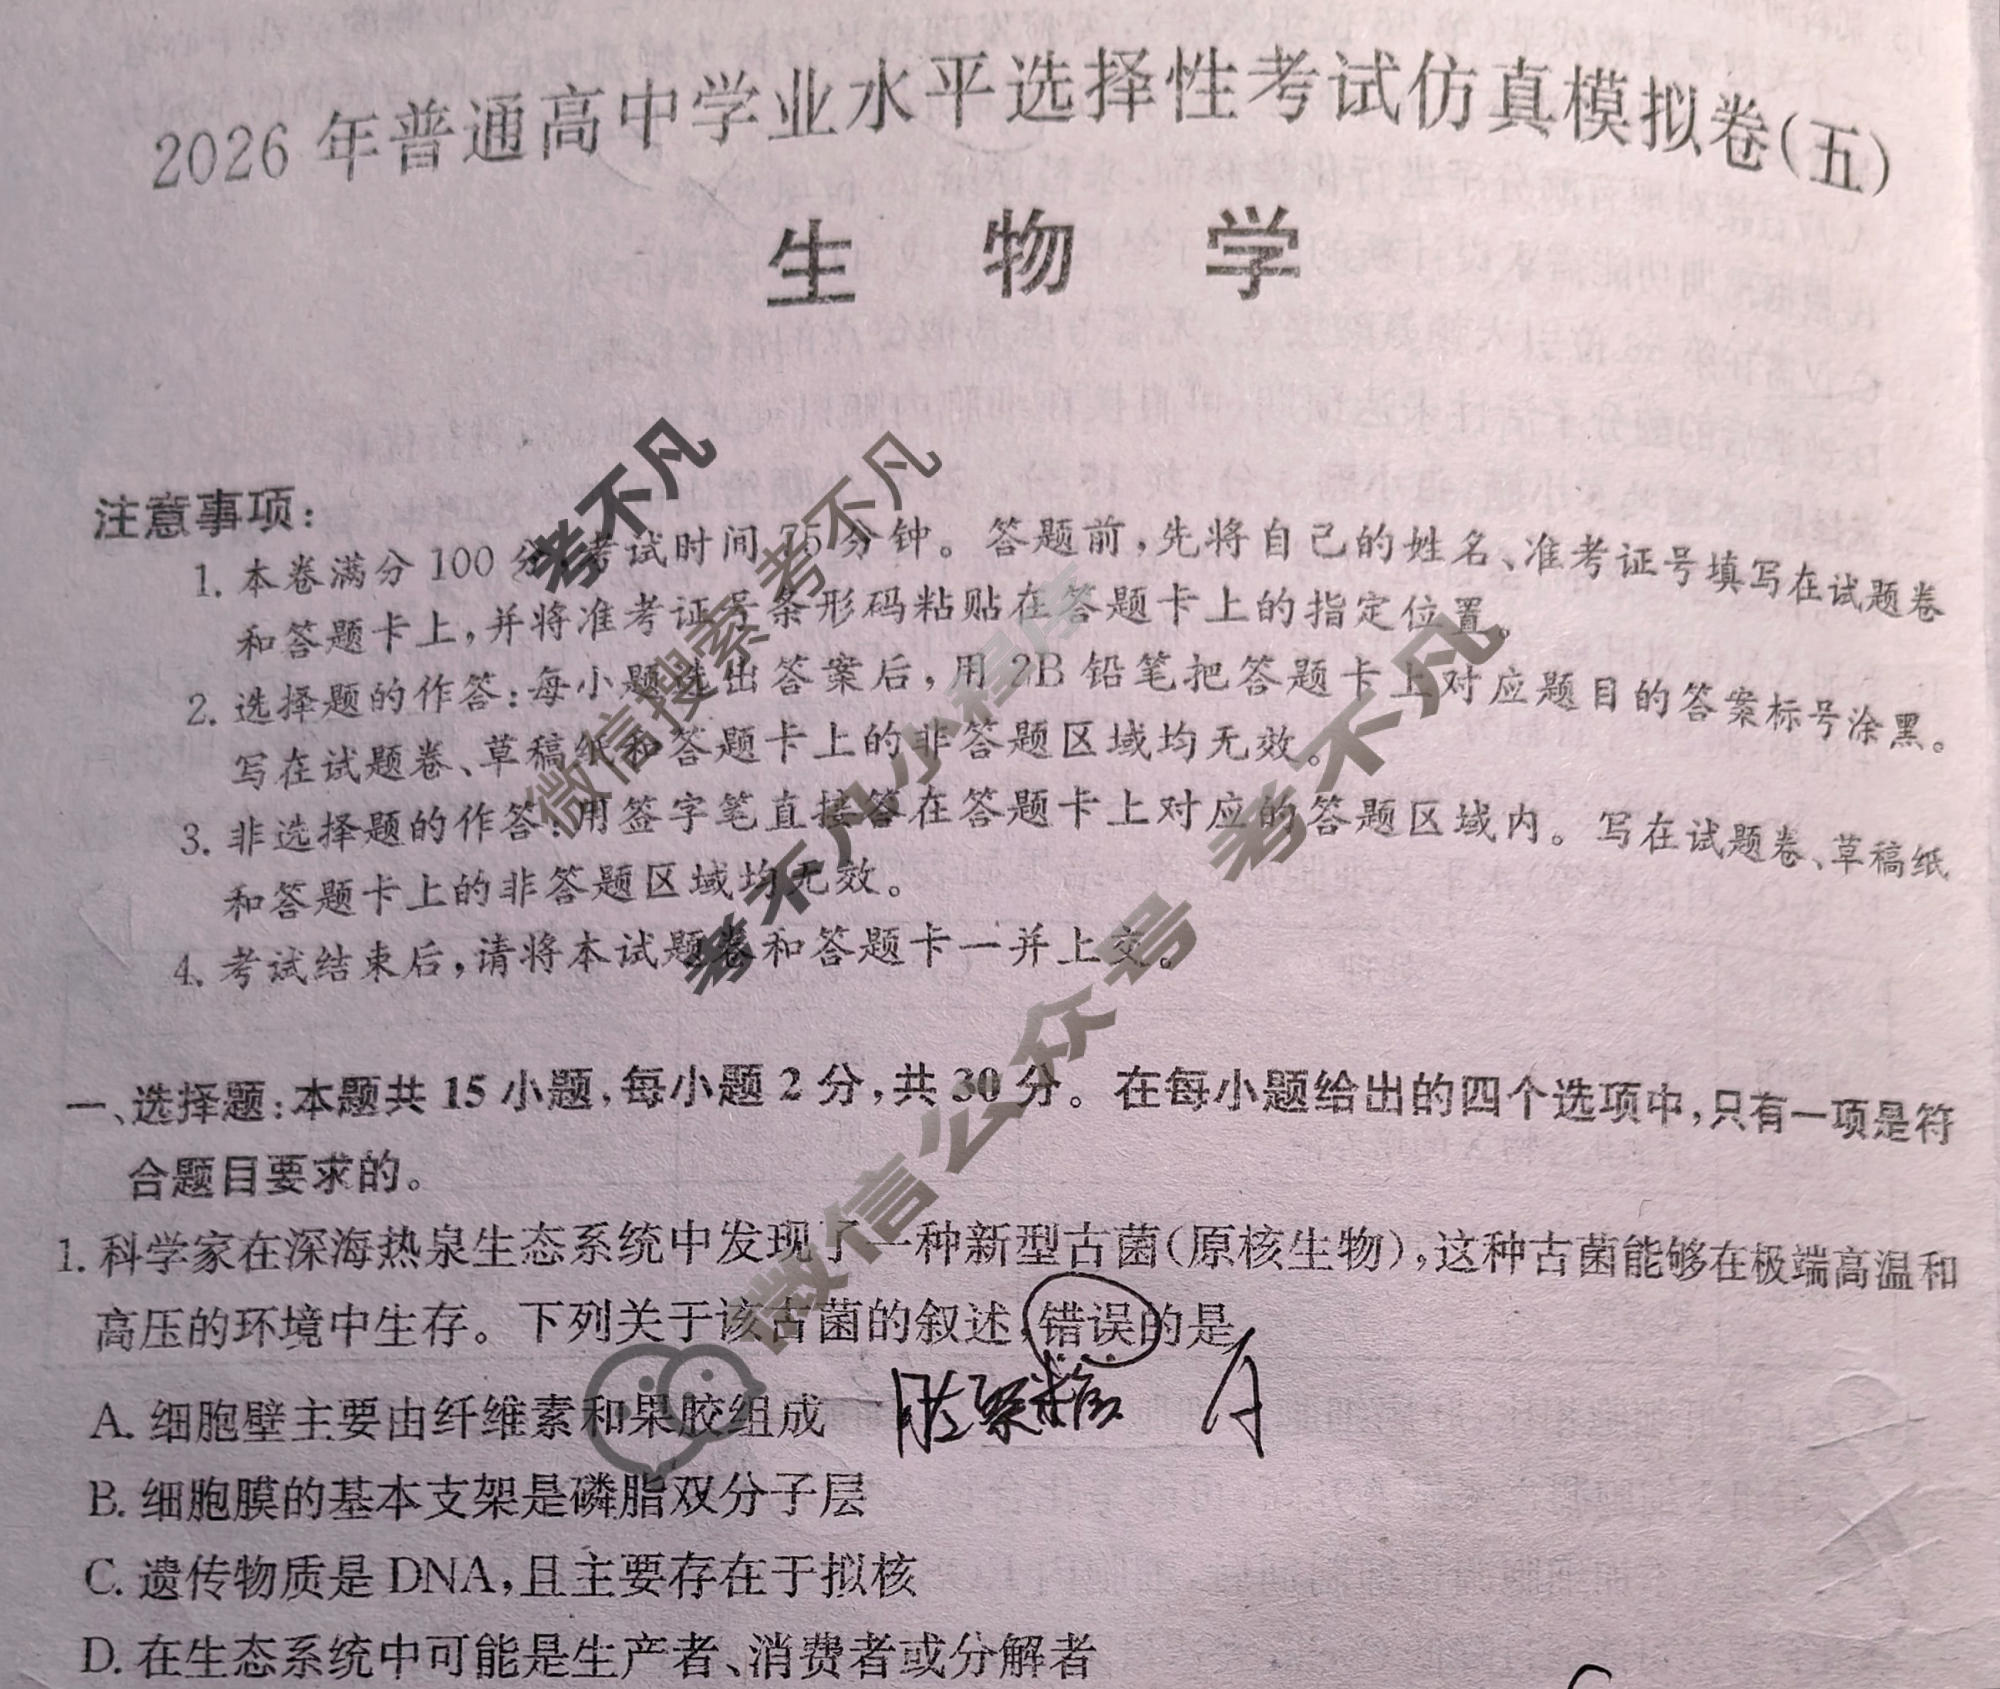 2026年普通高中学业水平选择性考试仿真模拟卷(五)
生 物 学
注意事项:
1. 本卷满分100分,考试时间75分钟。答题前,先将自己的姓名、准考证号填写在试题卷
和答题卡上,并将准考证号条形码粘贴在答题卡上的指定位置。
2. 选择题的作答:每小题选出答案后,用2B铅笔把答题卡上对应题目的答案标号涂黑。
写在试题卷、草稿纸和答题卡上的非答题区域均无效。
3. 非选择题的作答:用签字笔直接答在答题卡上对应的答题区域内。写在试题卷、草稿纸
和答题卡上的非答题区域均无效。
4. 考试结束后,请将本试题卷和答题卡一并上交。
考不凡
微信搜索 考不凡
考不凡小程序
微信公众号 考不凡
一、选择题:本题共15小题,每小题2分,共30分。在每小题给出的四个选项中,只有一项是符
合题目要求的。
1. 科学家在深海热泉生态系统中发现了一种新型古菌(原核生物),这种古菌能够在极端高温和
高压的环境中生存。下列关于该古菌的叙述,错误的是
A. 细胞壁主要由纤维素和果胶组成 肽聚糖 A
B. 细胞膜的基本支架是磷脂双分子层
C. 遗传物质是DNA,且主要存在于拟核
D. 在生态系统中可能是生产者、消费者或分解者